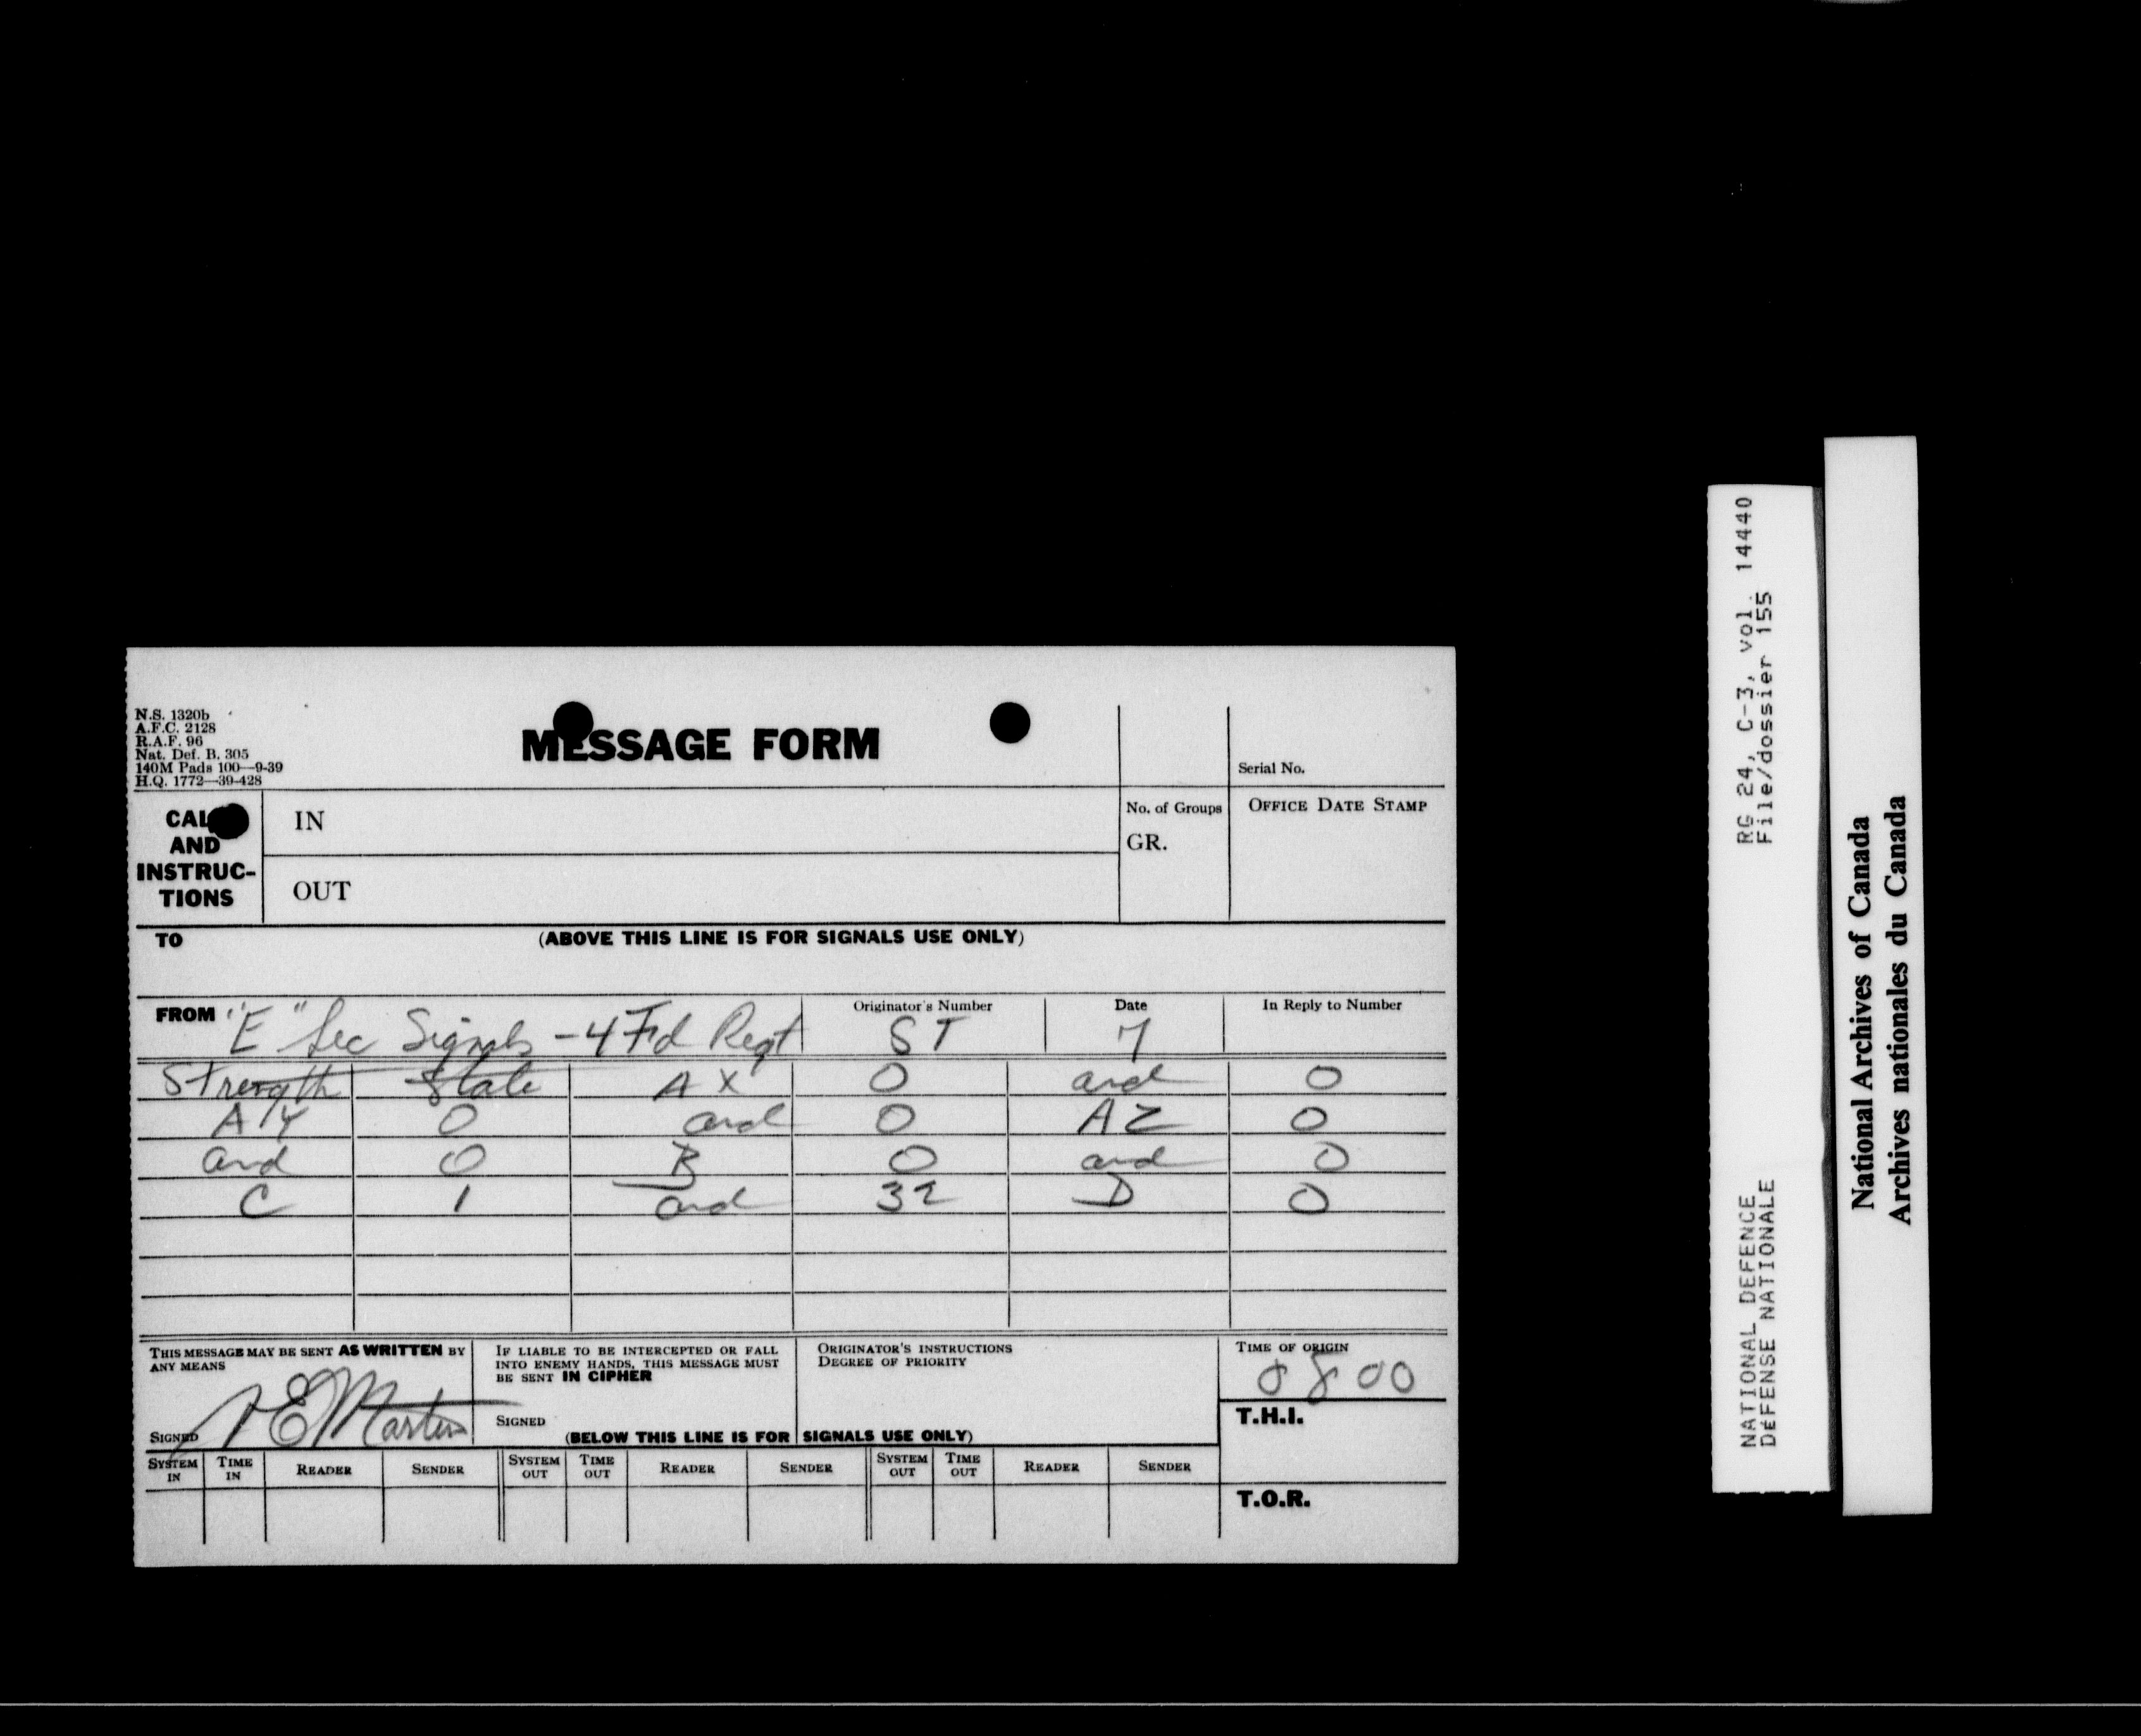 N.S. 1320b
A.F.C. 2128
R.A.F. 96
Nat. Def. B. 305
140M Pads 100—9-39
H.Q. 1772—39-428
MESSAGE FORM
Serial No.
CAL
AND
INSTRUC-
TIONS
IN
OUT
No. of Groups
GR.
OFFICE DATE STAMP
TO
(ABOVE THIS LINE IS FOR SIGNALS USE ONLY)
FROM "E" Sec Signals - 4 Fd Regt
Originator's Number
ST
Date
7
In Reply to Number
Strength State AX 0 and 0
AY 0 and 0 AZ 0
and 0 B 0 and 0
C 1 and 32 D 0
THIS MESSAGE MAY BE SENT AS WRITTEN BY
ANY MEANS
SIGNED
E Martin
IF LIABLE TO BE INTERCEPTED OR FALL
INTO ENEMY HANDS, THIS MESSAGE MUST
BE SENT IN CIPHER
SIGNED
ORIGINATOR'S INSTRUCTIONS
DEGREE OF PRIORITY
TIME OF ORIGIN
0800
T.H.I.
(BELOW THIS LINE IS FOR SIGNALS USE ONLY)
SYSTEM IN TIME IN READER SENDER SYSTEM OUT TIME OUT READER SENDER SYSTEM OUT TIME OUT READER SENDER
T.O.R.
NATIONAL DEFENCE RG 24, C-3, vol. 14440
DÉFENSE NATIONALE File/dossier 155
National Archives of Canada
Archives nationales du Canada